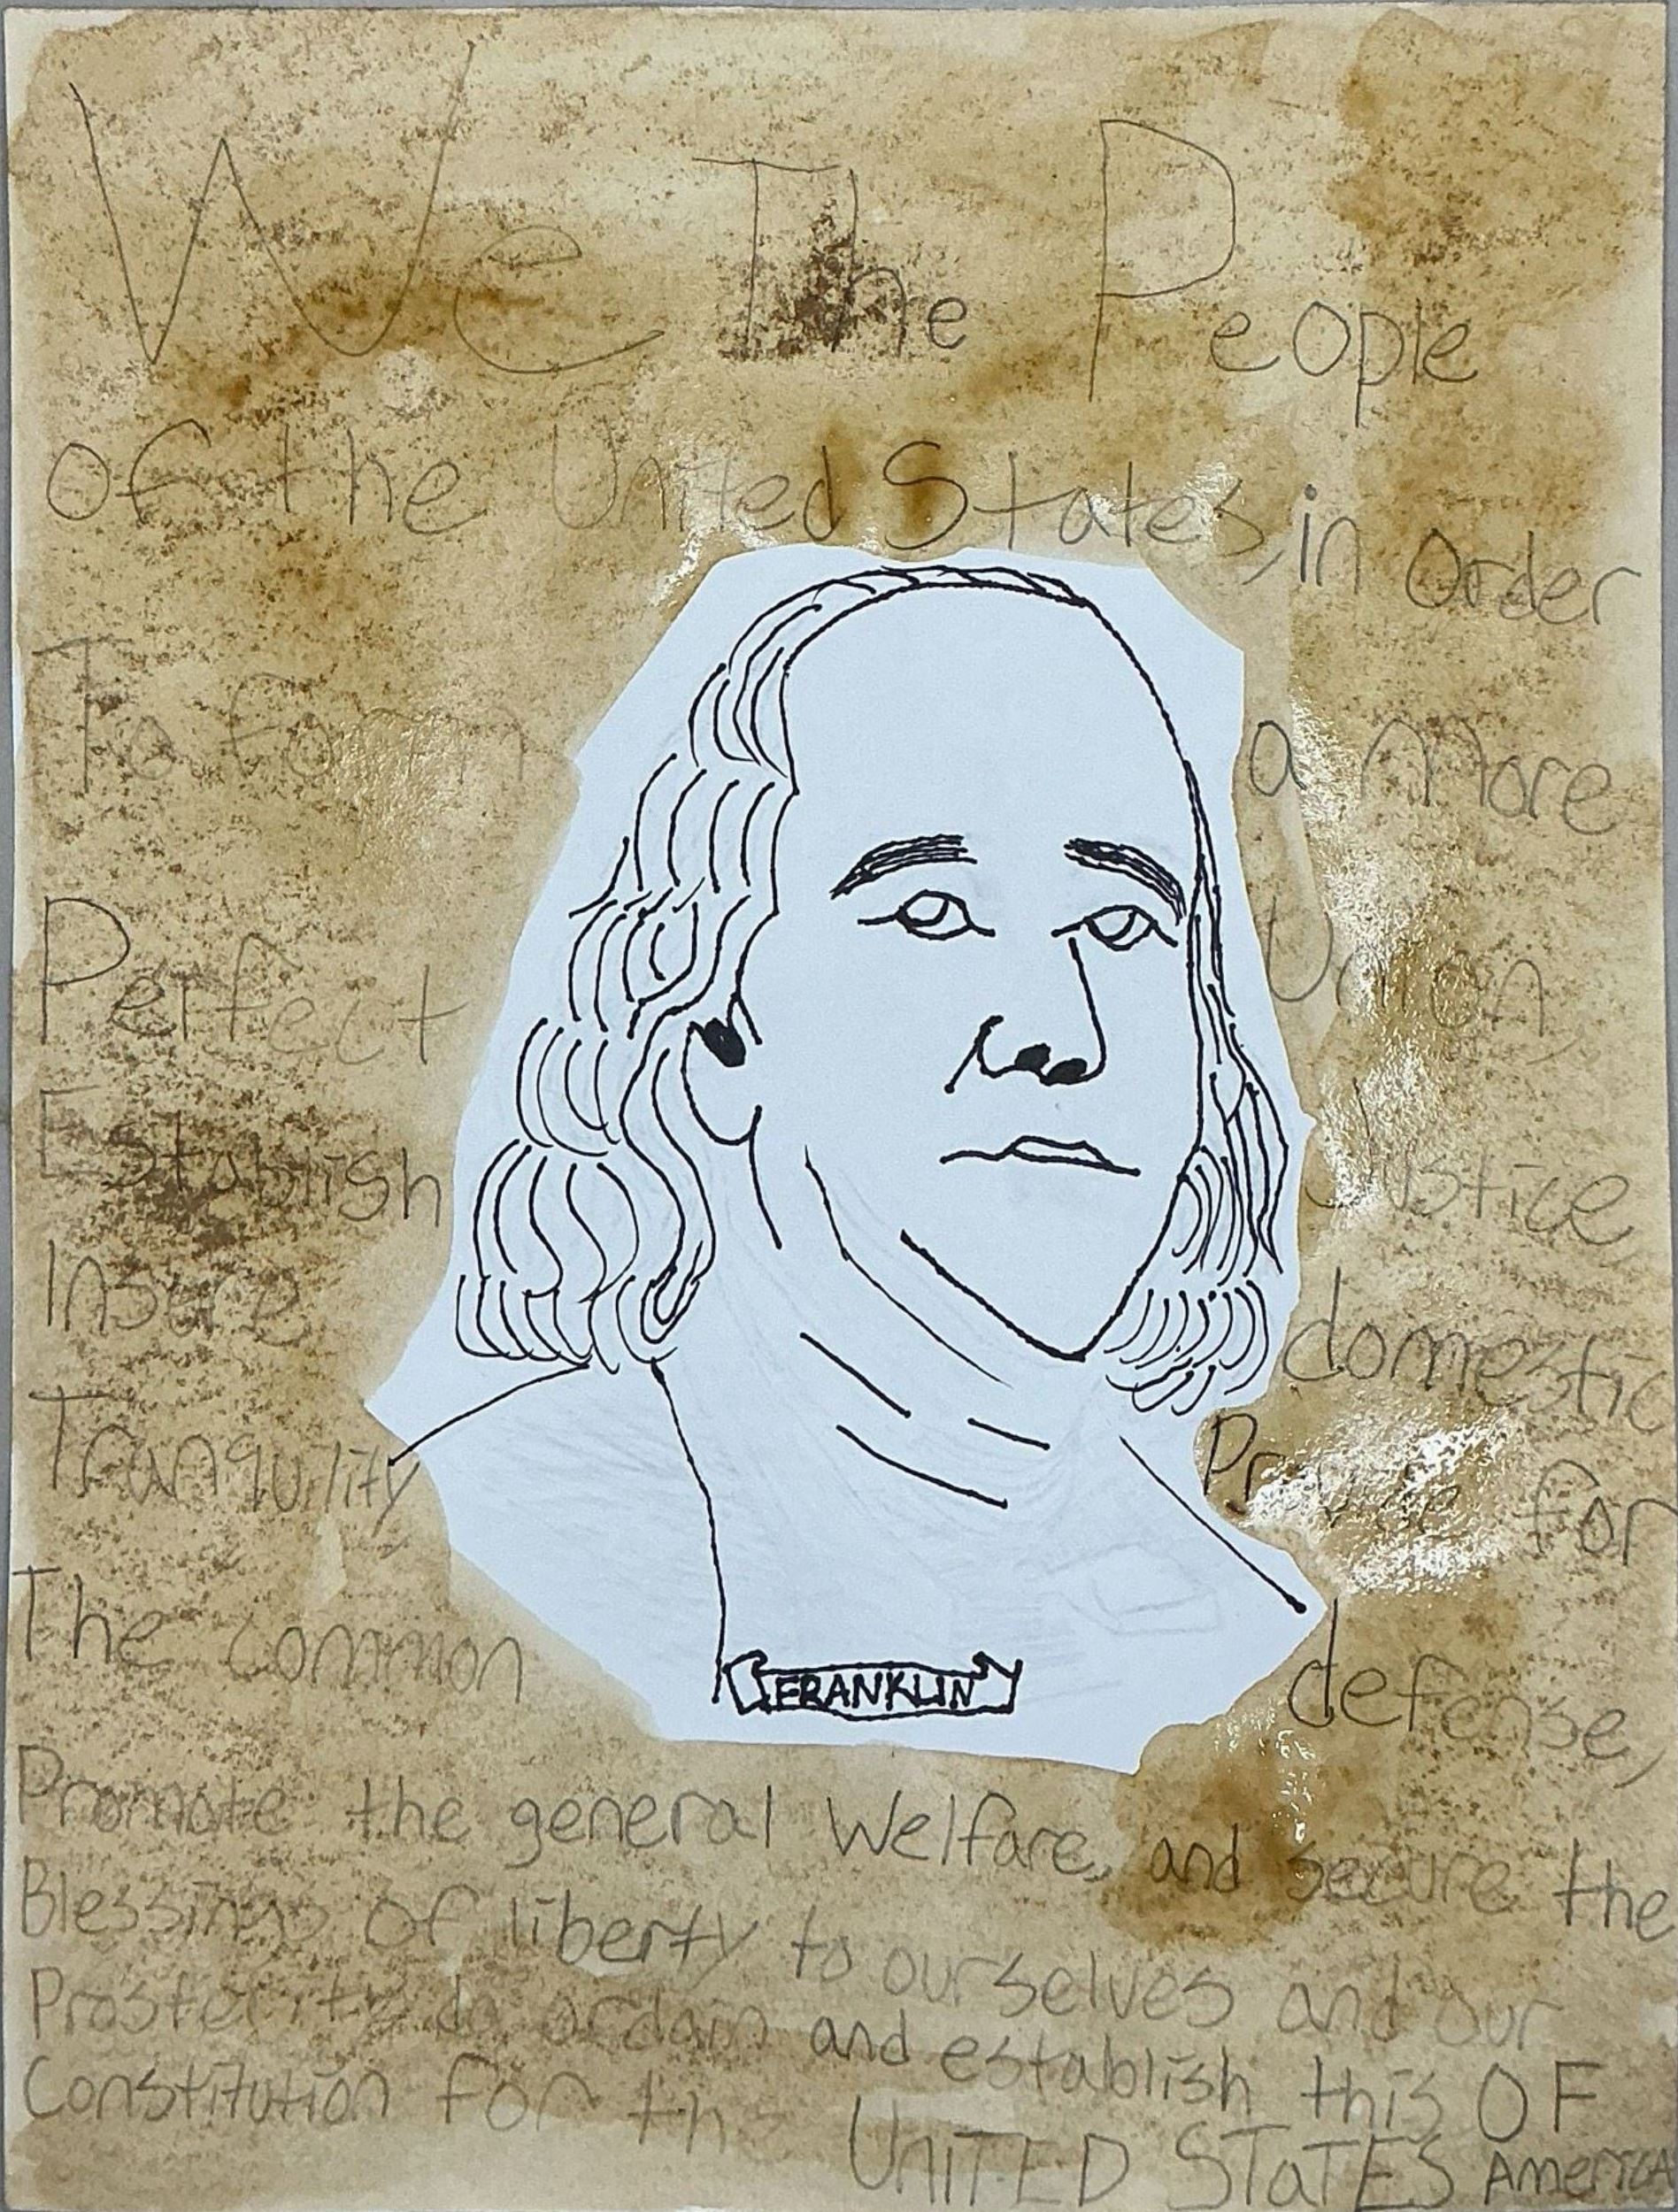 We The People
of the United States, in order
To form a more
Perfect Union,
Establish Justice,
Insure domestic
Tranquility Provide for
The common defense,
FRANKLIN
Promote the general Welfare, and secure the
Blessings of liberty to ourselves and our
Prosterity do ordain and establish this
Constitution for the UNITED STaTES OF AmericA